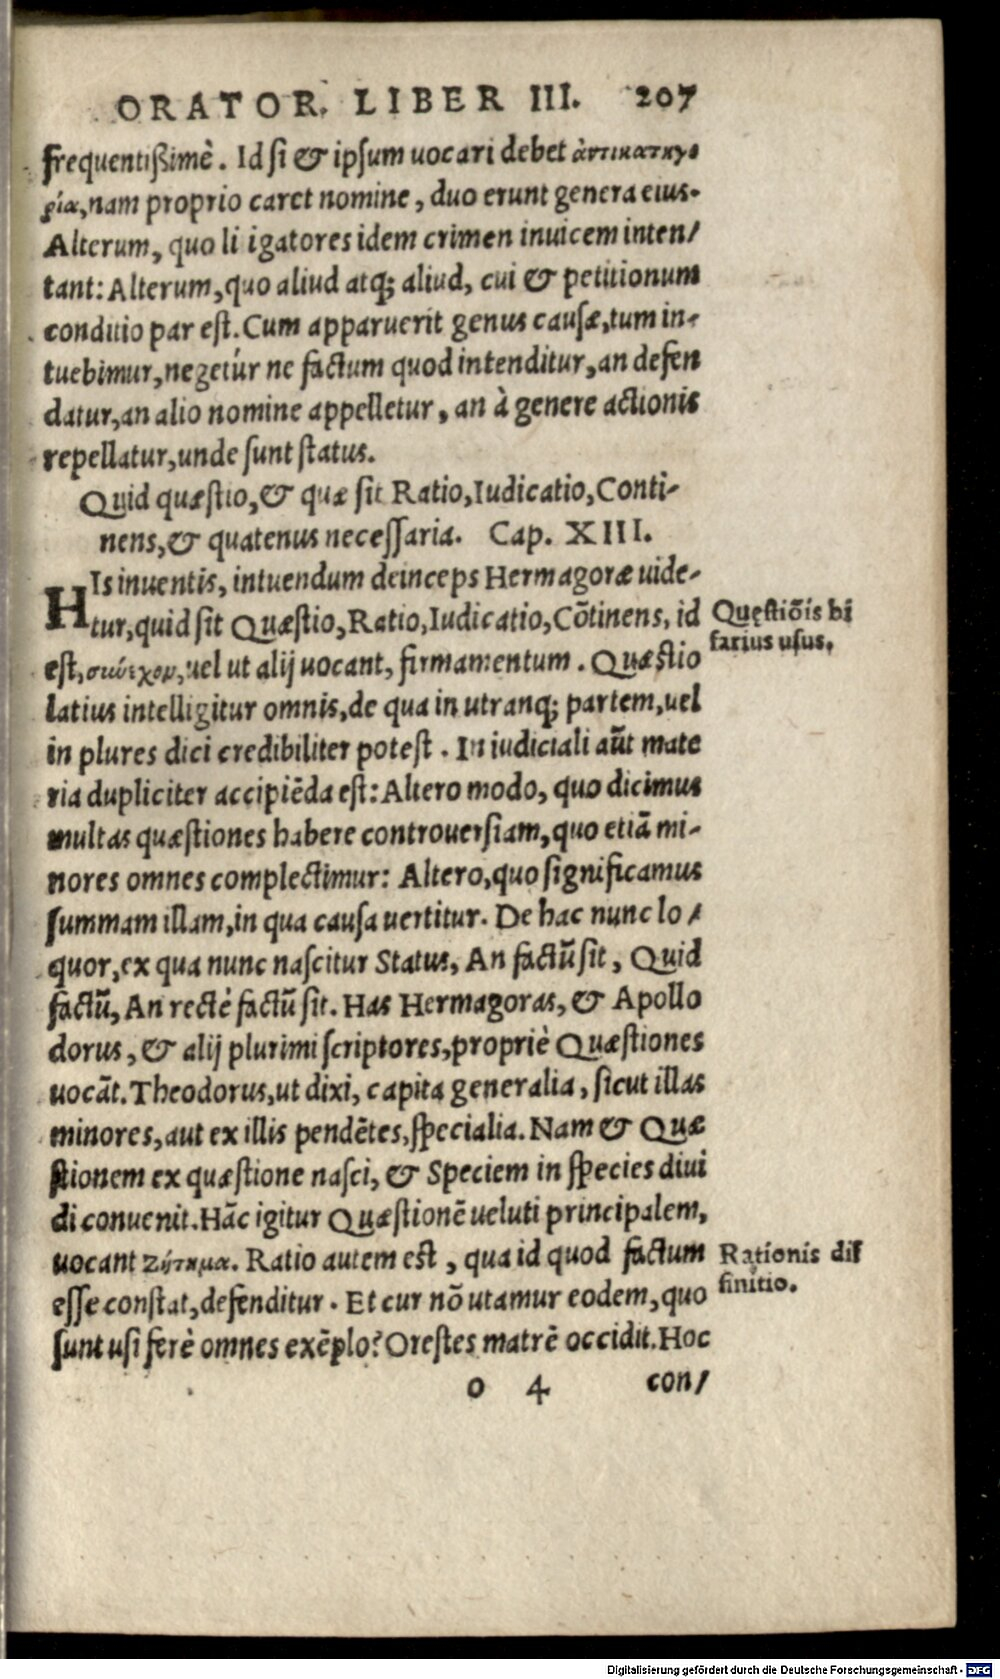 ORATOR. LIBER III. 207
frequentißimè. Id si & ipsum uocari debet ἀντικατηγο
ρία, nam proprio caret nomine, duo erunt genera eius.
Alterum, quo li igatores idem crimen inuicem inten/
tant: Alterum, quo aliud atq; aliud, cui & petitionum
conditio par est. Cum apparuerit genus causæ, tum in-
tuebimur, negetúr ne factum quod intenditur, an defen
datur, an alio nomine appelletur, an à genere actionis
repellatur, unde sunt status.
Quid quæstio, & quæ sit Ratio, Iudicatio, Conti-
nens, & quatenus necessaria. Cap. XIII.
HIs inuentis, intuendum deinceps Hermagoræ uide-
tur, quid sit Quæstio, Ratio, Iudicatio, Cōtinens, id
Quęstiōis bi
farius usus.
est, συνέχον, uel ut alij uocant, firmamentum. Quæstio
latius intelligitur omnis, de qua in utranq; partem, uel
in plures dici credibiliter potest. In iudiciali aūt mate
ria dupliciter accipiēda est: Altero modo, quo dicimus
multas quæstiones habere controuersiam, quo etiā mi-
nores omnes complectimur: Altero, quo significamus
summam illam, in qua causa uertitur. De hac nunc lo/
quor, ex qua nunc nascitur Status, An factū sit, Quid
factū, An rectè factū sit. Has Hermagoras, & Apollo
dorus, & alij plurimi scriptores, propriè Quæstiones
uocāt. Theodorus, ut dixi, capita generalia, sicut illas
minores, aut ex illis pendētes, specialia. Nam & Quæ
stionem ex quæstione nasci, & Speciem in species diui
di conuenit. Hāc igitur Quæstionē ueluti principalem,
uocant ζήτημα. Ratio autem est, qua id quod factum
Rationis dif
finitio.
esse constat, defenditur. Et cur nō utamur eodem, quo
sunt usi ferè omnes exēplo? Orestes matrē occidit. Hoc
o 4 con/
Digitalisierung gefördert durch die Deutsche Forschungsgemeinschaft - DFG